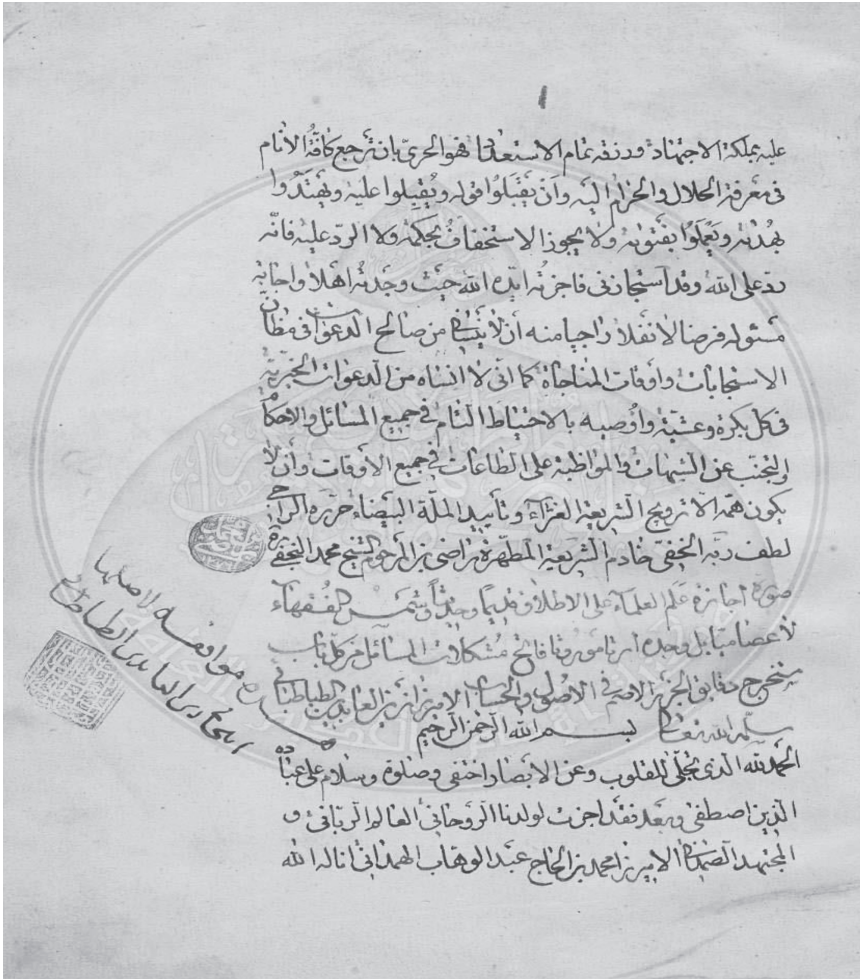 ١
عليه بملكة الاجتهاد ورزقه تمام الاستعداد فهو الحريّ بان ترجع كافّة الأنام
فى معرفة الحلال والحرام اليه وأن يقبلوا قوله ويقبلوا عليه ويهتدوا
بهداه ويعملوا بفتواه ولا يجوز الاستخفاف بحكمه ولا الرد عليه فانّه
ردّ على الله وقد استجازنى فاجزته ايّده الله حيث وجدته اهلا واجابة
مسئوله فرضا لا نفلا راجيا منه أن لا ينسانى من صالح الدعوات فى مظانّ
الاستجابات واوقات المناجاة كما انّى لا انساه من الدعوات الخيرية
فى كل بكرة وعشيّة واوصيه بالاحتياط التام فى جميع المسائل والاحكام
والتجنب عن الشبهات والمواظبة على الطاعات فى جميع الأوقات وأن لا
يكون همّه الّا ترويج الشريعة الغرّاء وتأييد الملّة البيضاء حرّره الراجى
لطف ربّه الخفى خادم الشريعة المطهرة راضى بن المرحوم الشيخ محمد النجفى
صورة اجازة علم العلماء على الاطلاق قديما وحديثاً وشمس الفقهاء
فاتح مشكلات المسائل من كل باب
الاصول والحساب الاميرزا زين العابدين الطباطبائى
سلمه الله تعالى بسم الله الرحمن الرحيم
الحمد لله الذى تجلّى للقلوب وعن الابصار اختفى وصلوة وسلام على عباده
الّذين اصطفى وبعد فقد اجزت لولدنا الروحانىّ العالم الربّانى و
المجتهد الصمدانى الاميرزا محمد بن الحاج عبد الوهاب الهمدانى اناله الله
موافقه لاصلها
الطباطبائى